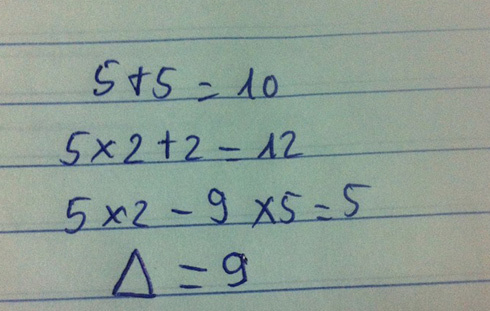 5+5=10
5×2+2=12
5×2-9×5=5
Δ=9